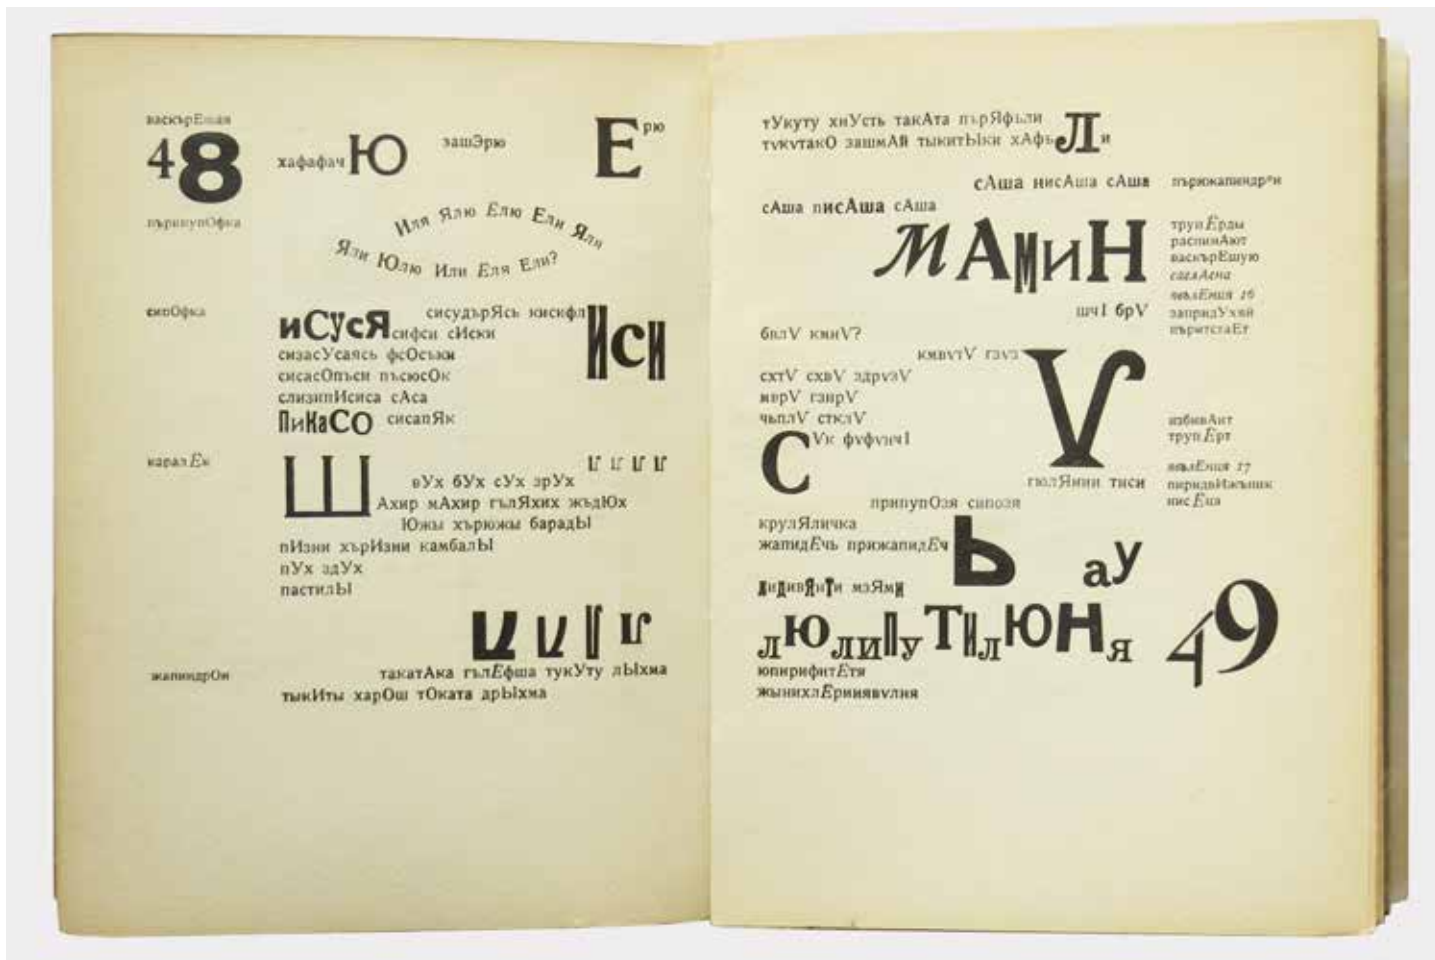 васкърЕшая
48
пърипупОфка
хафафачЮ
зашЭрю
Ерю
Иля Ялю Елю Ели Яля
Яли Юлю Или Еля Ели?
сипОфка
иСУсЯ сисудърЯсь кисифл
сифси сИски
Иси
сизасУсаясь фсОсъки
сисасОпъси пъсюсОк
слизипИсиса сАса
ПиКаСО сисапЯк
Ш
вУх бУх сУх зрУх
Ахир мАхир гълЯхих жъдЮх
Южы хърюжы барадЫ
пИзни хърИзни камбалЫ
пУх здУх
пастилЫ
жапиндрОн
такатАка гълЕфша тукУту лЫхма
тыкИты харОш тОката дрЫхма
тУкуту хнУсть такАта пърЯфьли
зашмАй тыкитЫки хАфьЛи
сАша нисАша сАша
сАша писАша сАша
МАМиН
трупЕрды
распинАют
васкърЕшую
саглАсна
явлЕния 16
запридУхяй
пъритстаЕт
шчI брV
бплV кмнV?
кмвvтV гзvз
V
схтV схвV здрvзV
мврV гзирV
чьплV стклV
СVк фvфvнчI
гюлЯнии тиси
избивАит
трупЕрт
явлЕния 17
нисЕца
припупОзя сипозя
крулЯличка
жапидЕчь прижапидЕчЬ
ау
дидивЯнТи мзЯми
лЮлиПуТИлЮНя
49
юпирифитЕтя
жынихлЕриияврлия